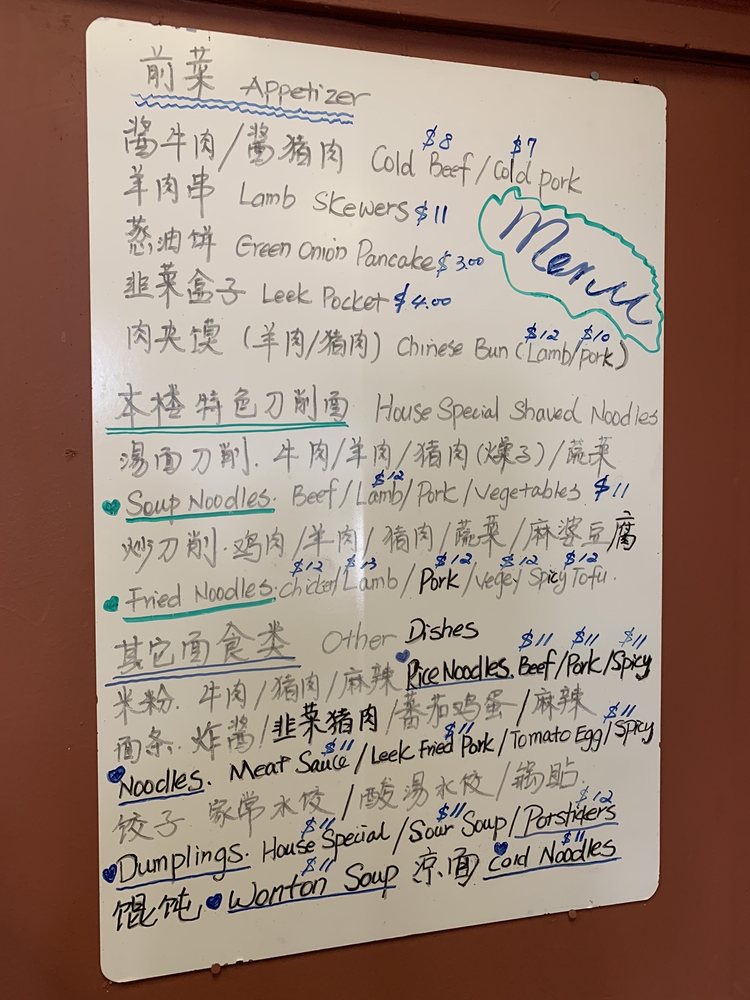 前菜 Appetizer
$8 $7
酱牛肉/酱猪肉 Cold Beef/Cold pork
羊肉串 Lamb Skewers $11
Menu
葱油饼 Green Onion Pancake $3.00
韭菜盒子 Leek Pocket $4.00
$12 $10
肉夹馍 (羊肉/猪肉) Chinese Bun (Lamb/pork)
本楼特色刀削面 House Special Shaved Noodles
湯面刀削. 牛肉/羊肉/猪肉(燥子)/蔬菜
$12
Soup Noodles. Beef/Lamb/Pork/Vegetables $11
炒刀削. 鸡肉/羊肉/猪肉/蔬菜/麻婆豆腐
$12 $13 $12 $12 $12
Fried Noodles. chicken/Lamb/Pork/Vegey Spicy Tofu.
其它面食类 Other Dishes
$11 $11 $11
米粉. 牛肉/猪肉/麻辣 Rice Noodles. Beef/Pork/Spicy
面条. 炸酱/韭菜猪肉/蕃茄鸡蛋/麻辣
$11 $11 $11
Noodles. Meat Sauce/Leek Fried Pork/Tomato Egg/Spicy
饺子 家常水饺/酸湯水饺/锅贴.
$11 $11 $12
Dumplings. House Special/Sour Soup/Porstickers
$11 $11
馄饨 Wonton Soup 凉面 Cold Noodles